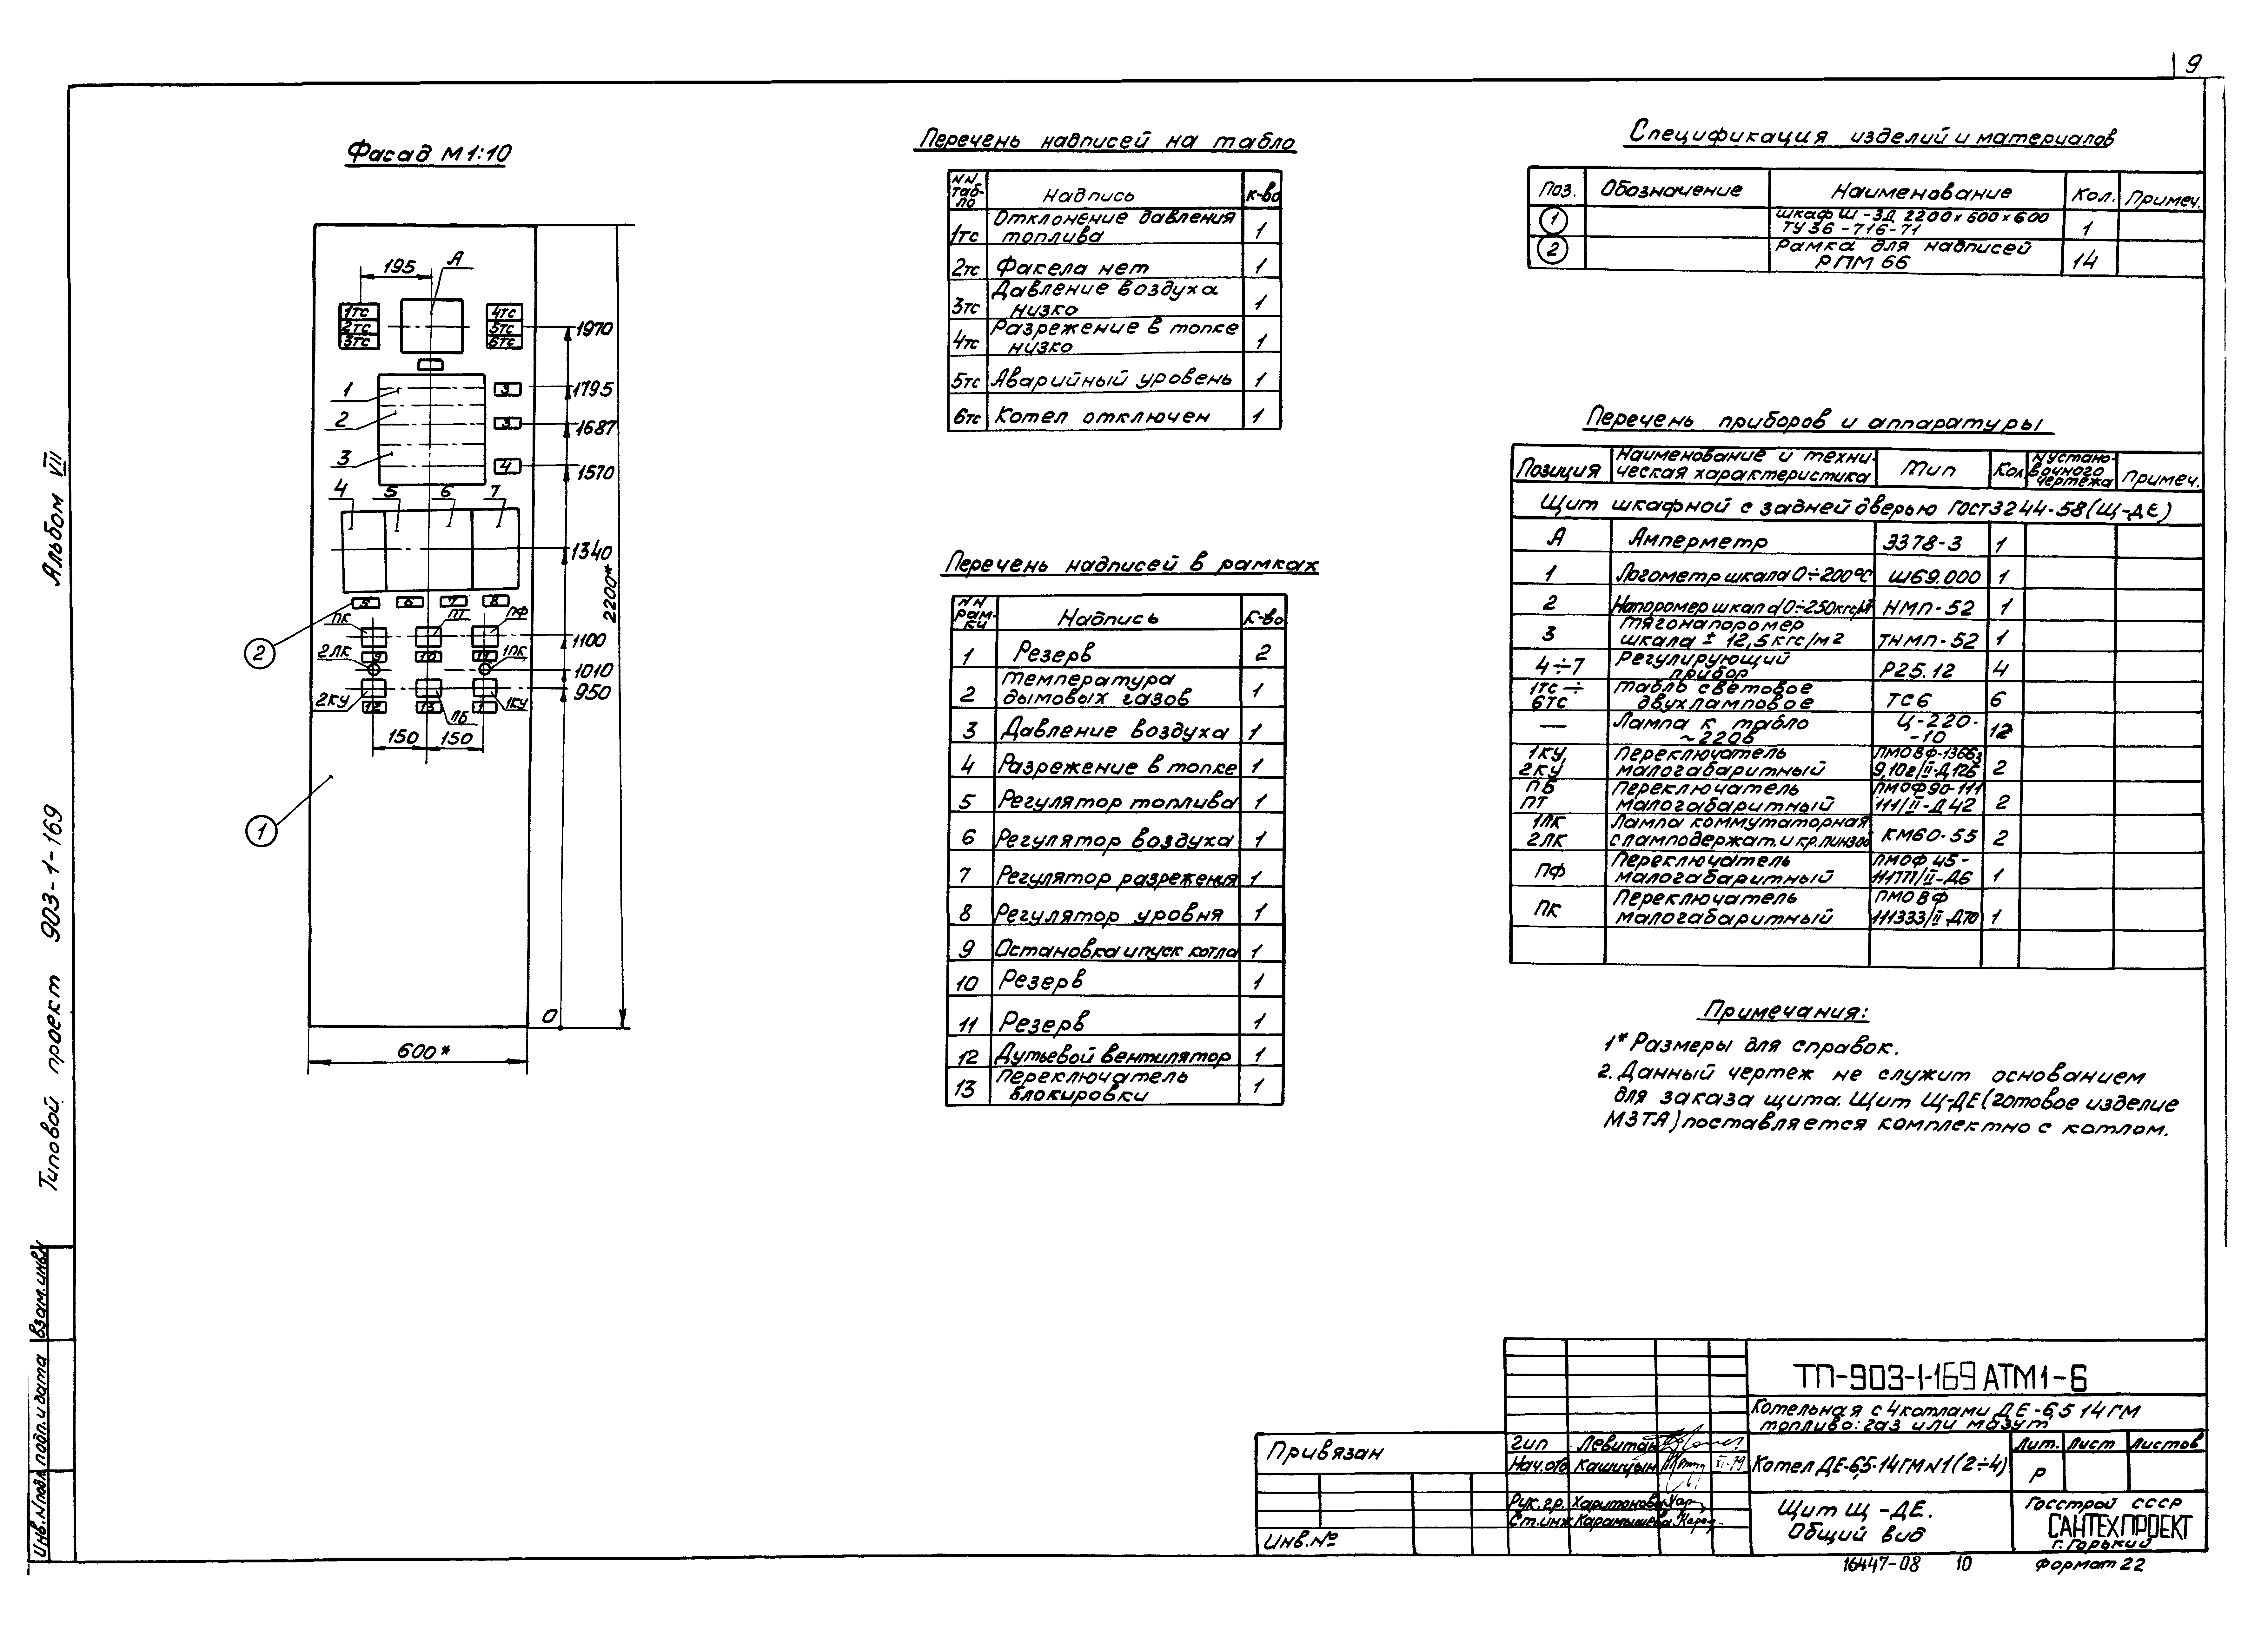 9
Фасад М 1:10
195
А
1ТС
2ТС
3ТС
4ТС
5ТС
6ТС
1970
1
3
1795
2
3
1687
3
4
1570
4
5
6
7
1340
2200*
5
6
7
8
ПК
ПТ
ПФ
2
1100
2ЛК
9
10
11
1ЛК
1010
950
2КУ
12
13
1
ПБ
1КУ
150
150
1
0
600*
Перечень надписей на табло
NN таб-ло
Надпись
к-во
1тс Отклонение давления топлива 1
2тс Факела нет 1
3тс Давление воздуха низко 1
4тс Разрежение в топке низко 1
5тс Аварийный уровень 1
6тс Котел отключен 1
Перечень надписей в рамках
NN рам-ки
Надпись
К-во
1 Резерв 2
2 Температура дымовых газов 1
3 Давление воздуха 1
4 Разрежение в топке 1
5 Регулятор топлива 1
6 Регулятор воздуха 1
7 Регулятор разрежения 1
8 Регулятор уровня 1
9 Остановка и пуск котла 1
10 Резерв 1
11 Резерв 1
12 Дутьевой вентилятор 1
13 Переключатель блокировки 1
Спецификация изделий и материалов
Поз. Обозначение Наименование Кол. Примеч.
1 шкаф Ш-3Д 2200х600х600
ТУ36-716-71 1
2 Рамка для надписей
РПМ 66 14
Перечень приборов и аппаратуры
Позиция Наименование и техни-ческая характеристика Тип Кол. N устано-вочного чертежа Примеч.
Щит шкафной с задней дверью ГОСТ3244-58(Щ-ДЕ)
А Амперметр Э378-3 1
1 Логометр шкала 0÷200°С Ш69.000 1
2 Напоромер шкала 0÷250кгс/м² НМП-52 1
3 Тягонапоромер
шкала ± 12,5кгс/м2 ТНМП-52 1
4÷7 Регулирующий
прибор Р25.12 4
1тс÷
6тс Табло световое
двухламповое ТС6 6
— Лампа к табло
~220в Ц-220-
-10 12
1КУ,
2КУ Переключатель
малогабаритный ПМОВФ-13663
9,10г/II-Д126 2
ПБ
ПТ Переключатель
малогабаритный ПМОФ90-111
111/II-Д42 2
1ЛК
2ЛК Лампа коммутаторная
с ламподержат. и кр. линзой КМ60-55 2
ПФ Переключатель
малогабаритный ПМОФ 45-
/II-Д6 1
ПК Переключатель
малогабаритный ПМОВФ
111333/II-Д70 1
Примечания:
1* Размеры для справок.
2. Данный чертеж не служит основанием
для заказа щита. Щит Щ-ДЕ (готовое изделие
МЗТА) поставляется комплектно с котлом.
Альбом VII
Типовой проект 903-1-169
Взам.инв.N
Подп. и дата
Инв.N подл.
Привязан
Инв.№
ГИП Левитан
Нач.отд Кашицын XI-79
Рук.гр. Харитонова
Ст.инж Карамышева
ТП-903-1-169 АТМ1-6
Котельная с 4 котлами ДЕ-6,5 14ГМ
топливо: газ или мазут
Котел ДЕ-6,5-14ГМ N1(2÷4)
Лит. Лист Листов
Р
Щит Щ-ДЕ.
Общий вид
Госстрой СССР
САНТЕХПРОЕКТ
г.Горький
16447-08 10
Формат 22